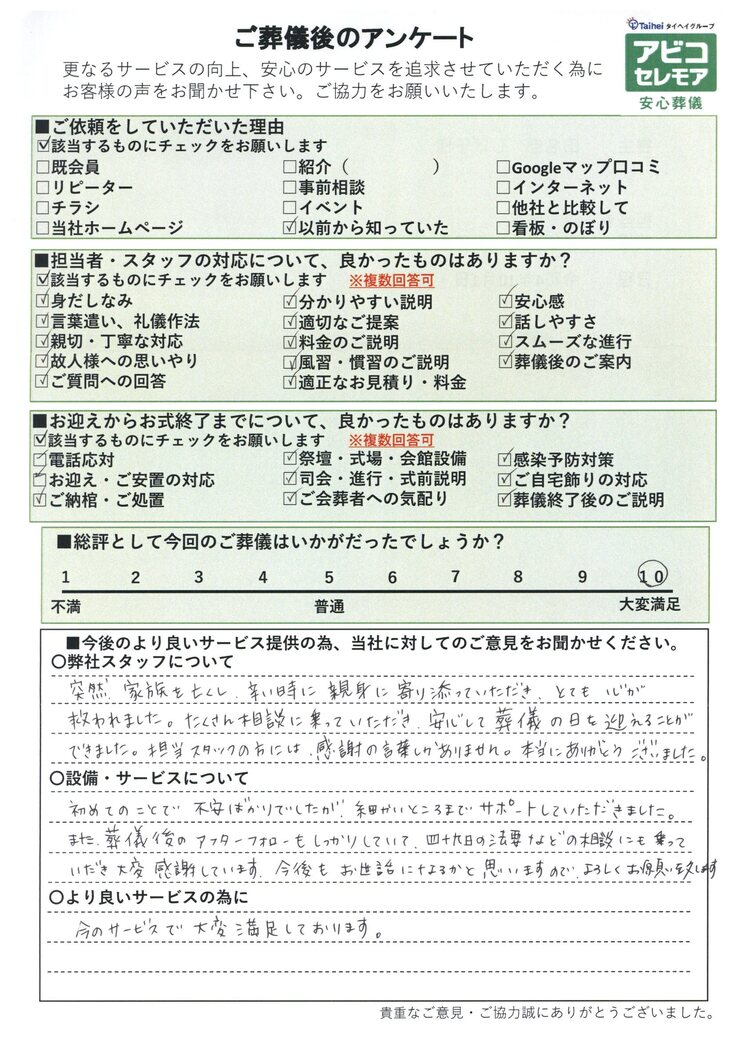 Taihei タイヘイグループ
ご葬儀後のアンケート
アビコ
セレモア
安心葬儀
更なるサービスの向上、安心のサービスを追求させていただく為に
お客様の声をお聞かせ下さい。ご協力をお願いいたします。
■ご依頼をしていただいた理由
☑該当するものにチェックをお願いします
□既会員 □紹介（ ） □Googleマップ口コミ
□リピーター □事前相談 □インターネット
□チラシ □イベント □他社と比較して
□当社ホームページ ☑以前から知っていた □看板・のぼり
■担当者・スタッフの対応について、良かったものはありますか？
☑該当するものにチェックをお願いします ※複数回答可
☑身だしなみ ☑分かりやすい説明 ☑安心感
☑言葉遣い、礼儀作法 ☑適切なご提案 ☑話しやすさ
☑親切・丁寧な対応 ☑料金のご説明 ☑スムーズな進行
☑故人様への思いやり ☑風習・慣習のご説明 ☑葬儀後のご案内
☑ご質問への回答 ☑適正なお見積り・料金
■お迎えからお式終了までについて、良かったものはありますか？
☑該当するものにチェックをお願いします ※複数回答可
☑電話応対 ☑祭壇・式場・会館設備 ☑感染予防対策
☑お迎え・ご安置の対応 ☑司会・進行・式前説明 ☑ご自宅飾りの対応
☑ご納棺・ご処置 ☑ご会葬者への気配り ☑葬儀終了後のご説明
■総評として今回のご葬儀はいかがだったでしょうか？
1 2 3 4 5 6 7 8 9 10
不満 普通 大変満足
■今後のより良いサービス提供の為、当社に対してのご意見をお聞かせください。
〇弊社スタッフについて
突然、家族を亡くし、辛い時に親身に寄り添っていただき、とても心が
救われました。たくさん相談に乗っていただき、安心して葬儀の日を迎えることが
できました。担当スタッフの方には、感謝の言葉しかありません。本当にありがとうございました。
〇設備・サービスについて
初めてのことで不安ばかりでしたが、細かいところまでサポートしていただきました。
また、葬儀後のアフターフォローもしっかりしていて、四十九日の法要などの相談にも乗って
いただき大変感謝しています。今後もお世話になるかと思いますので、よろしくお願い致します
〇より良いサービスの為に
今のサービスで大変満足しております。
貴重なご意見・ご協力誠にありがとうございました。